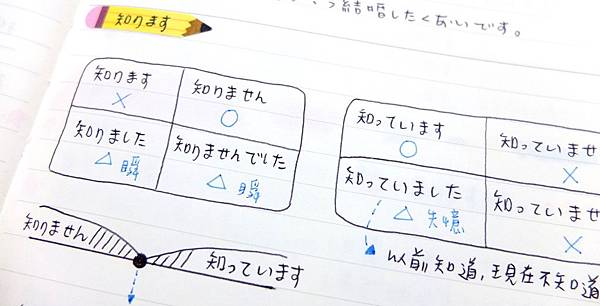 結婚したくないです。
知ります
知ります 知りません
× ○
知りました 知りませんでした
△ 瞬 △ 瞬
知っています 知っていませ
○ ×
知っていました 知っていませ
△ 失憶 ×
以前知道,現在不知道
知りません 知っています